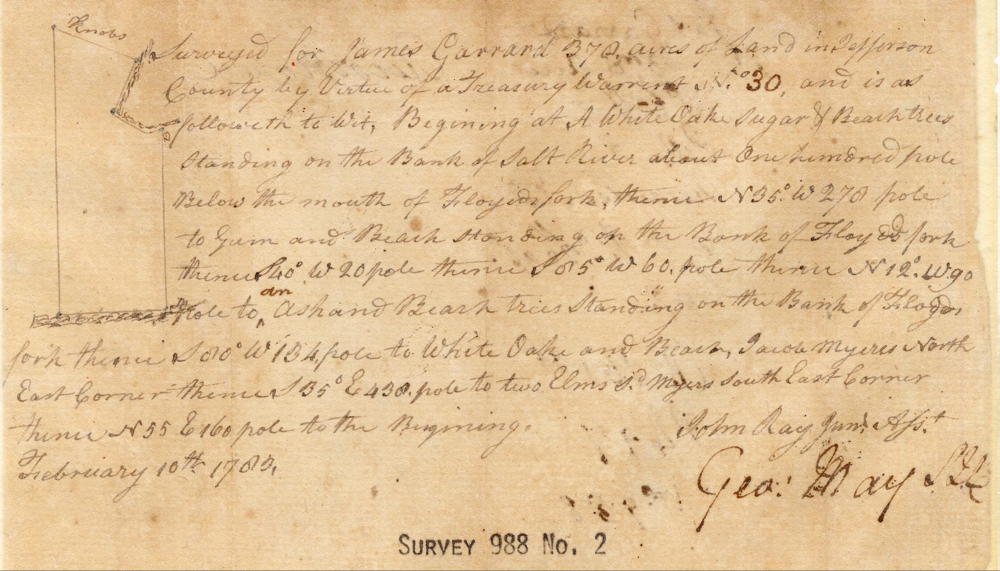 Knobs
Surveyed for James Garrard 378, acres of Land in Jefferson
County by Virtue of a Treasury Warrent No. 30, and is as
followeth to Wit, Begining at A White Oake Sugar & Beach trees
Standing on the Bank of Salt River about One hundred pole
Below the mouth of Floyeds fork, thence N35° W 278 pole
to Gum and Beach Standing on the Bank of Floyeds fork
thence S40° W 20 pole thence S 85° W 60. pole thence N 12° W 90
pole to an Ash and Beach trees Standing on the Bank of Floyds
fork thence S 80° W 154, pole to White Oake and Beach, Jacob Myers North
East Corner thence S 35° E 438. pole to two Elms Sd. Myers South East Corner
thence N 55 E 160 pole to the Begining.
John Ray Junr. Asst.
February 10th 1783.
Geo: May
SURVEY 988 No. 2